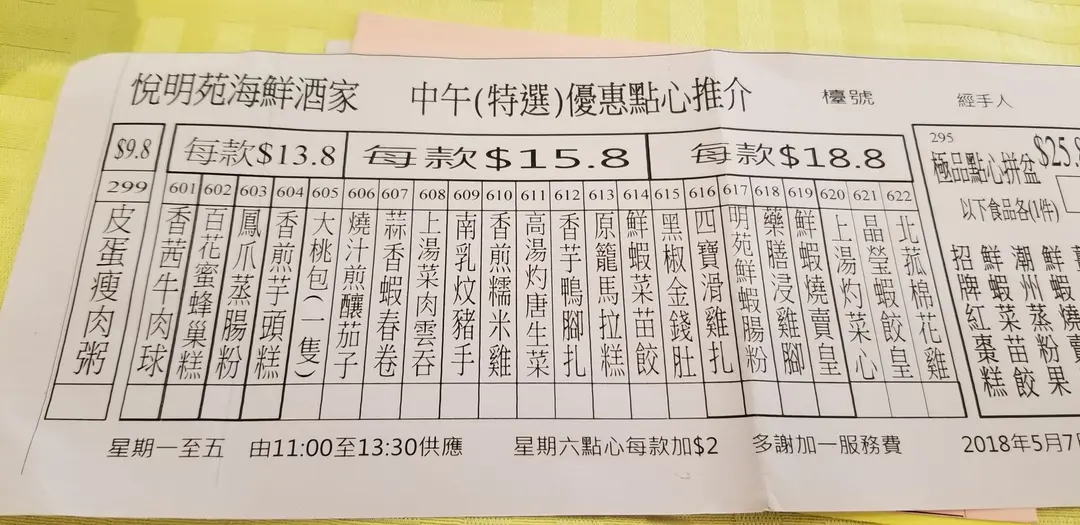 悅明苑海鮮酒家 中午(特選)優惠點心推介 檯號 經手人
$9.8 每款$13.8 每款$15.8 每款$18.8
299 皮蛋瘦肉粥
601 香茜牛肉球
602 百花蜜蜂巢糕
603 鳳爪蒸腸粉
604 香煎芋頭糕
605 大桃包(一隻)
606 燒汁煎釀茄子
607 蒜香蝦春卷
608 上湯菜肉雲吞
609 南乳炆豬手
610 香煎糯米雞
611 高湯灼唐生菜
612 香芋鴨腳扎
613 原籠馬拉糕
614 鮮蝦菜苗餃
615 黑椒金錢肚
616 四寶滑雞扎
617 明苑鮮蝦腸粉
618 藥膳浸雞腳
619 鮮蝦燒賣皇
620 上湯灼菜心
621 晶瑩蝦餃皇
622 北菰棉花雞
295
極品點心拼盆 $25.8
以下食品各(1件)
招牌紅棗糕
鮮蝦菜苗餃
潮州蒸粉果
鮮蝦燒賣
星期一至五 由11:00至13:30供應 星期六點心每款加$2 多謝加一服務費 2018年5月7日